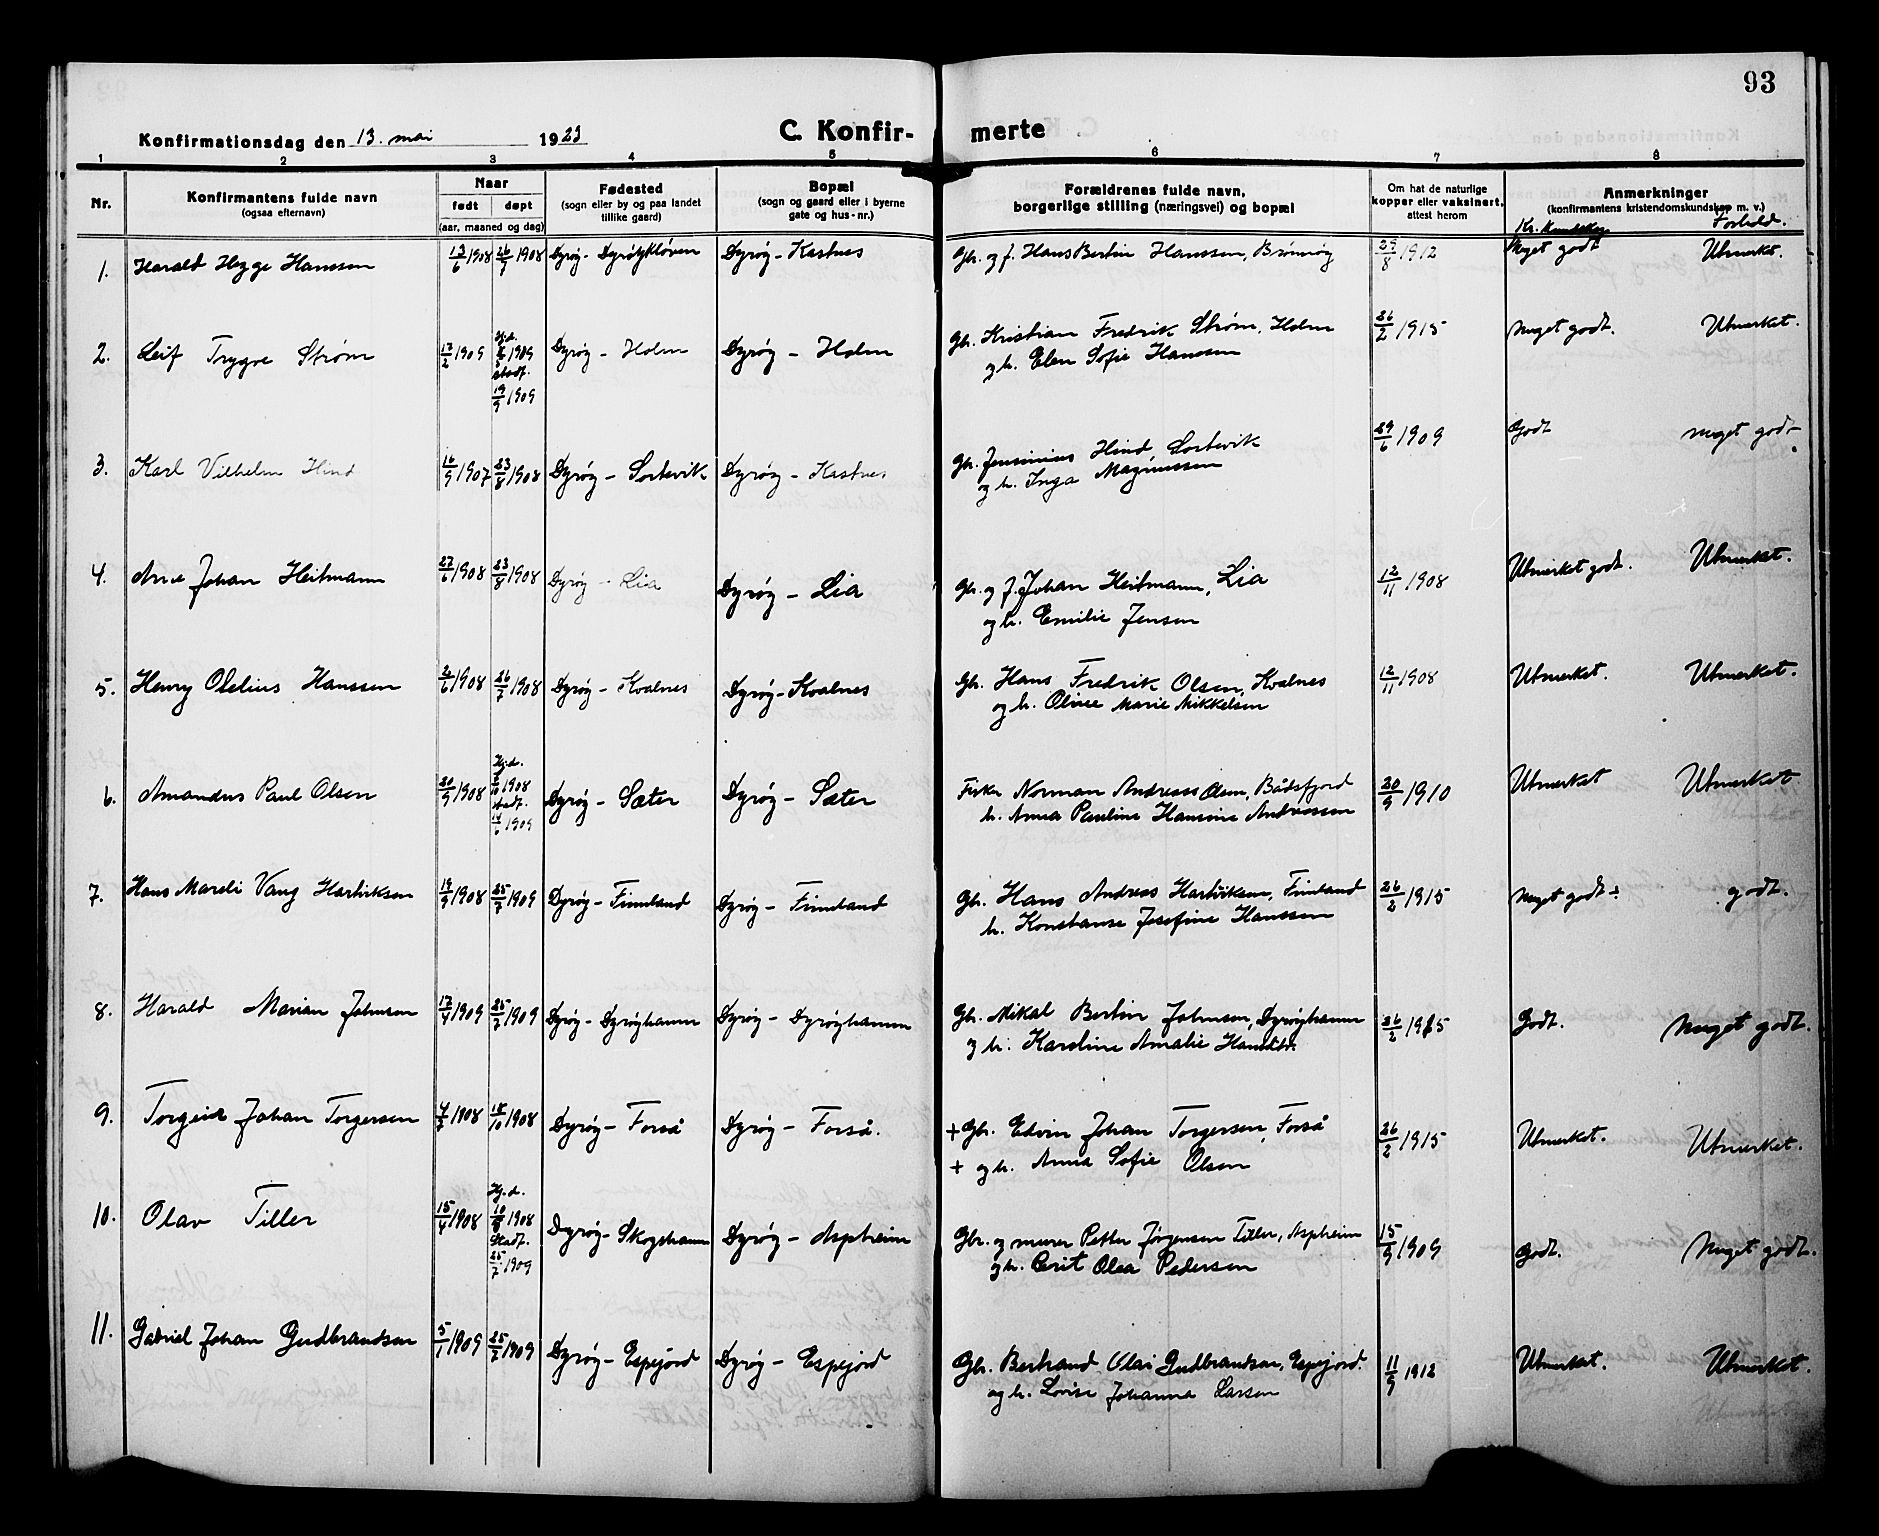 93
Konfirmationsdag den 13. mai 1923
C. Konfir-merte
1 2 3 4 5 6 7 8
Nr.
Konfirmantens fulde navn
(ogsaa efternavn)
Naar
født døpt
(aar, maaned og dag)
Fødested
(sogn eller by og paa landet
tillike gaard)
Bopæl
(sogn og gaard eller i byerne
gate og hus-nr.)
Forældrenes fulde navn,
borgerlige stilling (næringsvei) og bopæl
Om hat de naturlige
kopper eller vaksinert,
attest herom
Anmerkninger
(konfirmantens kristendomskundskap m. v.)
Kr. kundskap Forhold.
1. Harald Hegge Hanssen 13/6 1908 26/7 1908 Dyrøy - Dyrøykløven Dyrøy - Kastnes Gbr. og f. Hans Bertin Hanssen, Brønnøy 29/8 1912 Meget godt Utmerket.
2. Leif Trygve Strøm 17/2 1909 Hj.d. 1909 Dyrøy - Holm Dyrøy - Holm Gbr. Kristian Fredrik Strøm, Holm 26/2 1915 Meget godt. Utmerket.
stadf. og h. Elen Sofie Hanssen
19/9 1909
3. Karl Vilhelm Hind 16/9 1907 23/8 1908 Dyrøy - Sortevik Dyrøy - Kastnes Gbr. Jensinius Hind, Sortevik 29/6 1909 Godt meget godt
og h. Inga Magnussen
4. Arne Johan Heitmann 27/6 1908 23/8 1908 Dyrøy - Lia Dyrøy - Lia Gbr. og f. Johan Heitmann, Lia 12/11 1908 Utmerket godt. Utmerket.
og h. Emilie Jensen
5. Henry Olelius Hanssen 2/6 1908 26/7 1908 Dyrøy - Kvalnes Dyrøy - Kvalnes Gbr. Hans Fredrik Olsen, Kvalnes 12/11 1908 Utmerket. Utmerket.
og h. Oline Marie Mikkelsen
6. Amandus Paul Olsen 20/9 1908 Hj.d. 1908 Dyrøy - Sæter Dyrøy - Sæter Fisker Norman Andreas Olsen, Båtsfjord 20/9 1910 Utmerket Utmerket
stadf. h. Anna Pauline Hansine Andreassen
14/6 1909
7. Hans Mareli Vang Hartviksen 19/9 1908 25/7 1909 Dyrøy - Finnland Dyrøy - Finnland Gbr. Hans Andreas Hartviksen, Finnland 26/2 1915 Meget godt ÷ godt.
h. Konstanse Josefine Hanssen
8. Harald Marian Johnsen 17/4 1909 25/7 1909 Dyrøy - Dyrøyhamn Dyrøy - Dyrøyhamn Gbr. Mikal Bertin Johnsen, Dyrøyhamn 26/2 1915 Godt. Meget godt.
og h. Karoline Amalie Hansdtr.
9. Torgeir Johan Torgersen 4/7 1908 18/10 1908 Dyrøy - Forså Dyrøy - Forså. + Gbr. Edvin Johan Torgersen, Forså 26/2 1915 Utmerket. Utmerket.
+ og h. Anna Sofie Olsen
10. Olav Tiller 15/4 1908 Hj.d. 1908 Dyrøy - Skogshamn Dyrøy - Aspheim Gbr. og murer Petter Jørgensen Tiller, Aspheim 15/9 1909 Godt. Meget godt.
Stadf. og h. Berit Olea Pedersen
25/7 1909
11. Gabriel Johan Gudbrandsen 5/1 1909 25/7 1909 Dyrøy - Espejord Dyrøy - Espejord Gbr. Bertrand Olai Gudbrandsen, Espejord. 11/9 1912 Utmerket. Utmerket.
og h. Lovise Johanna Larsen